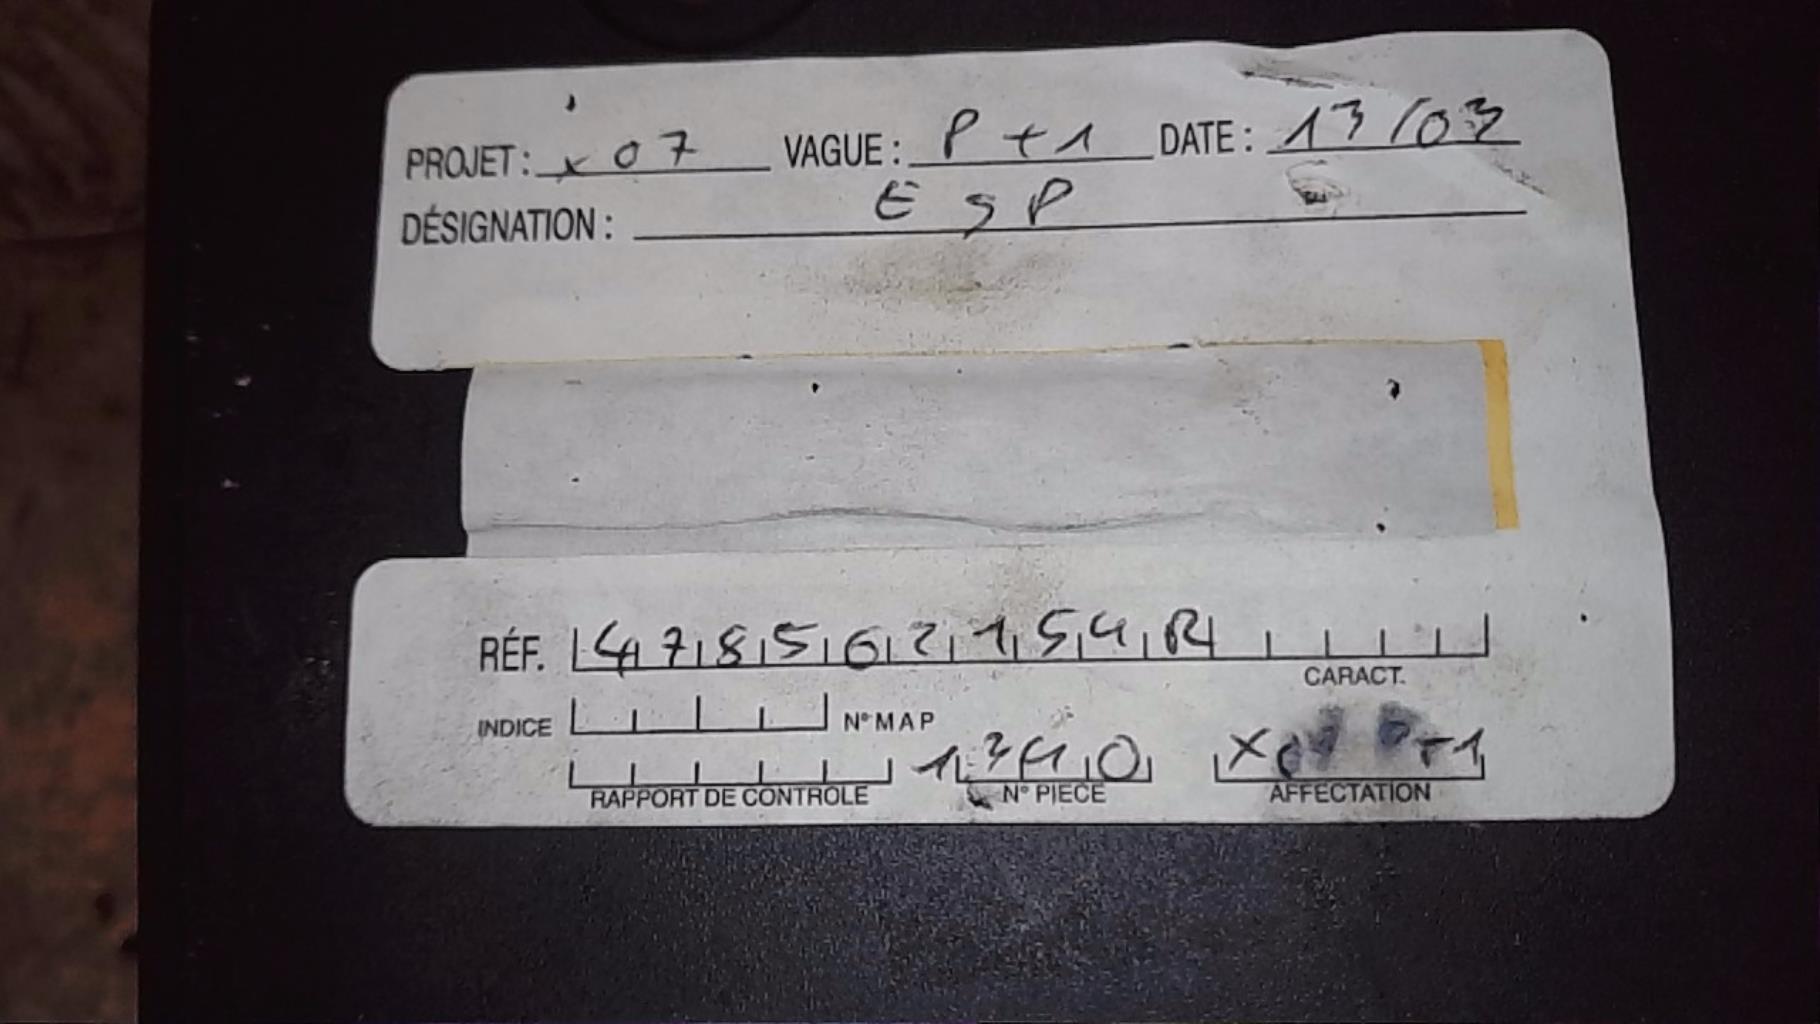 PROJET : x07 VAGUE : P+1 DATE : 13/03
DÉSIGNATION : ESP
RÉF. 478562154R
CARACT.
INDICE N° MAP
RAPPORT DE CONTROLE N° PIECE AFFECTATION